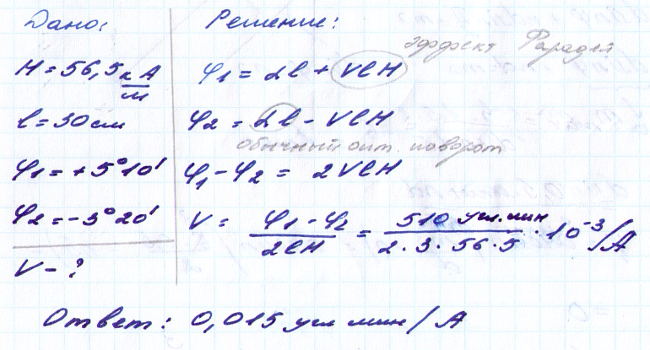 Дано:
H = 56,5 кА/м
l = 30 см
φ1 = +5°10'
φ2 = -3°20'
V - ?
Решение:
эффект Фарадея
φ1 = αl + VlH
φ2 = αl - VlH
обычный опт. поворот
φ1 - φ2 = 2VlH
V = (φ1 - φ2)/(2lH) = (510 угл.мин)/(2·3·56·5) · 10⁻³/А
Ответ: 0,015 угл мин / А